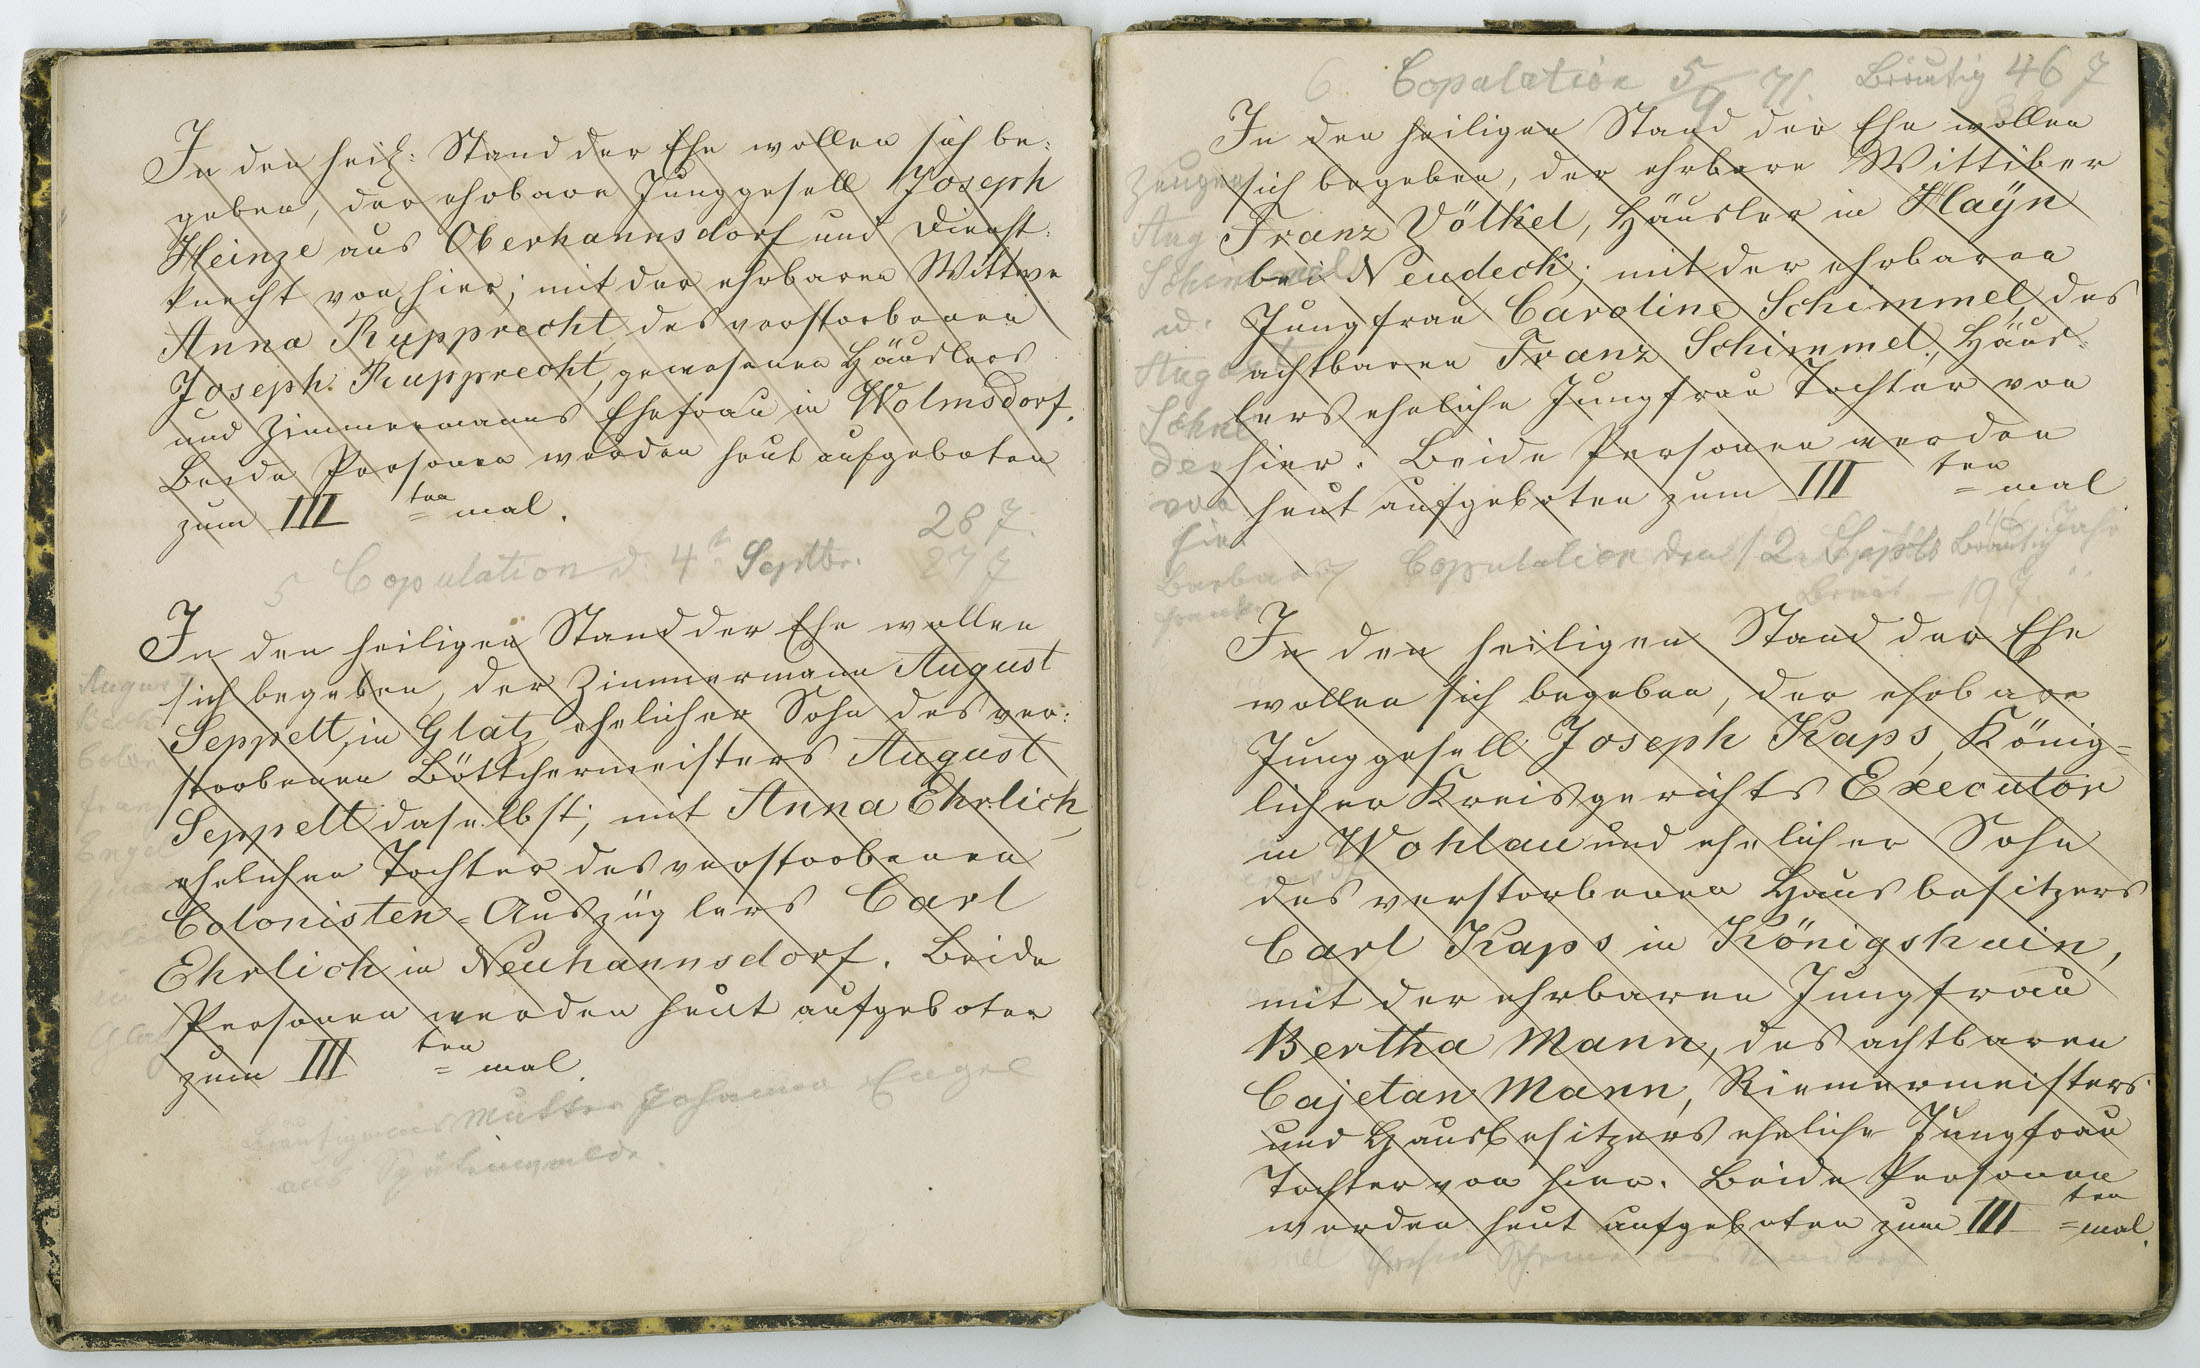 In den heil: Stand der Ehe wollen sich be:
geben, der ehrbare Junggesell Joseph
Heinze aus Oberhannsdorf und Dienst:
knecht von hier; mit der ehrbaren Wittwe
Anna Rupprecht, des verstorbenen
Joseph Rupprecht, gewesenen Häuslers
und Zimmermanns Ehefrau in Wolmsdorf.
Beide Personen werden heut aufgeboten
zum III ten = mal.
28 J.
5 Copulation d. 4t Septbr. 27 J
In den heiligen Stand der Ehe wollen
sich begeben, der Zimmermann August
Seppelt, in Glatz ehelicher Sohn des ver:
storbenen Böttchermeisters August
Seppelt daselbst; mit Anna Ehrlich,
ehelichen Tochter des verstorbenen
Colonisten-Auszüglers Carl
Ehrlich in Neuhannsdorf. Beide
Personen werden heut aufgeboten
zum III ten = mal.
August
Franz
Engel
in
Glatz
Bräutigams Mutter Johanna Engel
aus Spätenwalde.
6 Copulation 5/9 71. Bräutig 46 J
In den heiligen Stand der Ehe wollen
sich begeben, der ehrbare Wittiber
Franz Völkel, Häusler in Hayn
bei Neudeck; mit der ehrbaren
Jungfrau Caroline Schimmel, des
achtbaren Franz Schimmel, Häus-
lers eheliche Jungfrau Tochter von
hier. Beide Personen werden
heut aufgeboten zum III ten = mal
Zeugen
Aug
Schimmel
u.
August
von
hier
7 Copulation den 12 Septb Bräutig Jahr
Braut - 19 J.
In den heiligen Stand der Ehe
wollen sich begeben, der ehrbare
Junggesell Joseph Kaps, König-
licher Kreisgerichts Executor
in Wohlau und ehelicher Sohn
des verstorbenen Hausbesitzers
Carl Kaps in Königshain,
mit der ehrbaren Jungfrau
Bertha Mann, des achtbaren
Cajetan Mann, Riemermeisters
und Hausbesitzers eheliche Jungfrau
Tochter von hier. Beide Personen
werden heut aufgeboten zum III ten = mal.